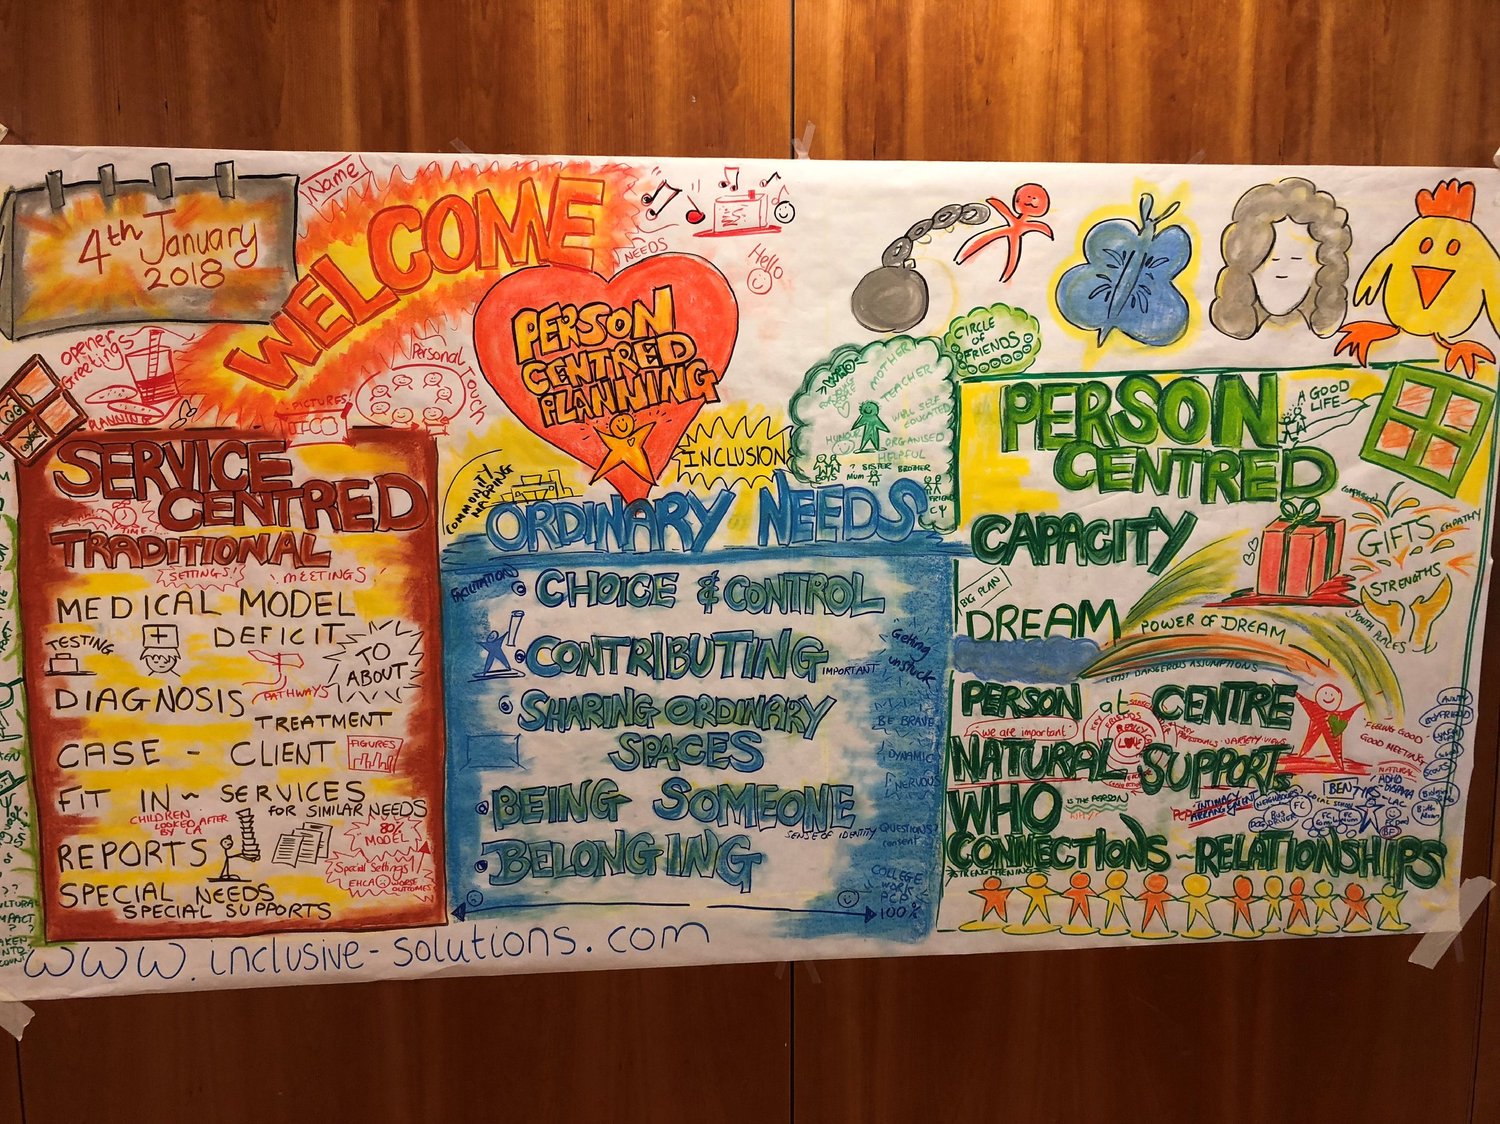 4th January
2018
Name
WELCOME
NEEDS
Hello
opener
Greetings
PLANNING
PICTURES
Personal Touch
PERSON
CENTRED
PLANNING
INCLUSION
COMMUNITY
MAPPING
SERVICE
CENTRED
TIME
TRADITIONAL
SETTINGS!
MEETINGS
MEDICAL MODEL
TESTING
DEFICIT
TO
ABOUT
PATHWAYS
DIAGNOSIS
TREATMENT
CASE - CLIENT
FIGURES
FIT IN ~ SERVICES
FOR SIMILAR NEEDS
CHILDREN
LOOKED AFTER
BY LA
80%
MODEL
REPORTS
Special Settings!
EHCA
WORSE
OUTCOMES
SPECIAL NEEDS
SPECIAL SUPPORTS
www.inclusive-solutions.com
ORDINARY NEEDS
CHOICE & CONTROL
CONTRIBUTING
IMPORTANT
Getting
unstuck
SHARING ORDINARY
SPACES
BE BRAVE
DYNAMIC
NERVOUS
BEING SOMEONE
SENSE OF IDENTITY
QUESTIONS?
consent
BELONGING
COLLEGE
WORK
PCP
100%
CIRCLE
OF
FRIENDS
MOTHER
TEACHER
WELL SELF
EDUCATED
HUMOUR
ORGANISED
HELPFUL
BOYS
? MUM
SISTER
BROTHER
FRIENDS
CY
PERSON
CENTRED
A GOOD
LIFE
CAPACITY
GIFTS
EMPATHY
STRENGTHS
YOUTH PLACES
BIG PLAN
DREAM
POWER OF DREAM
LEAST DANGEROUS ASSUMPTIONS
PERSON at CENTRE
we are important
FEELING GOOD
GOOD MEETING
AUNTY
BOYFRIEND
SCOUTS
NATURAL SUPPORTS
WHO
IS THE PERSON
WHY?
PCP
INTIMACY
NEIGHBOURS
BUS
DRIVER
LOCAL SCHOOL
BEN
NATURAL
ADHD
LAC
BF
Birth
Mum
CONNECTIONS ~ RELATIONSHIPS
STRENGTHENING